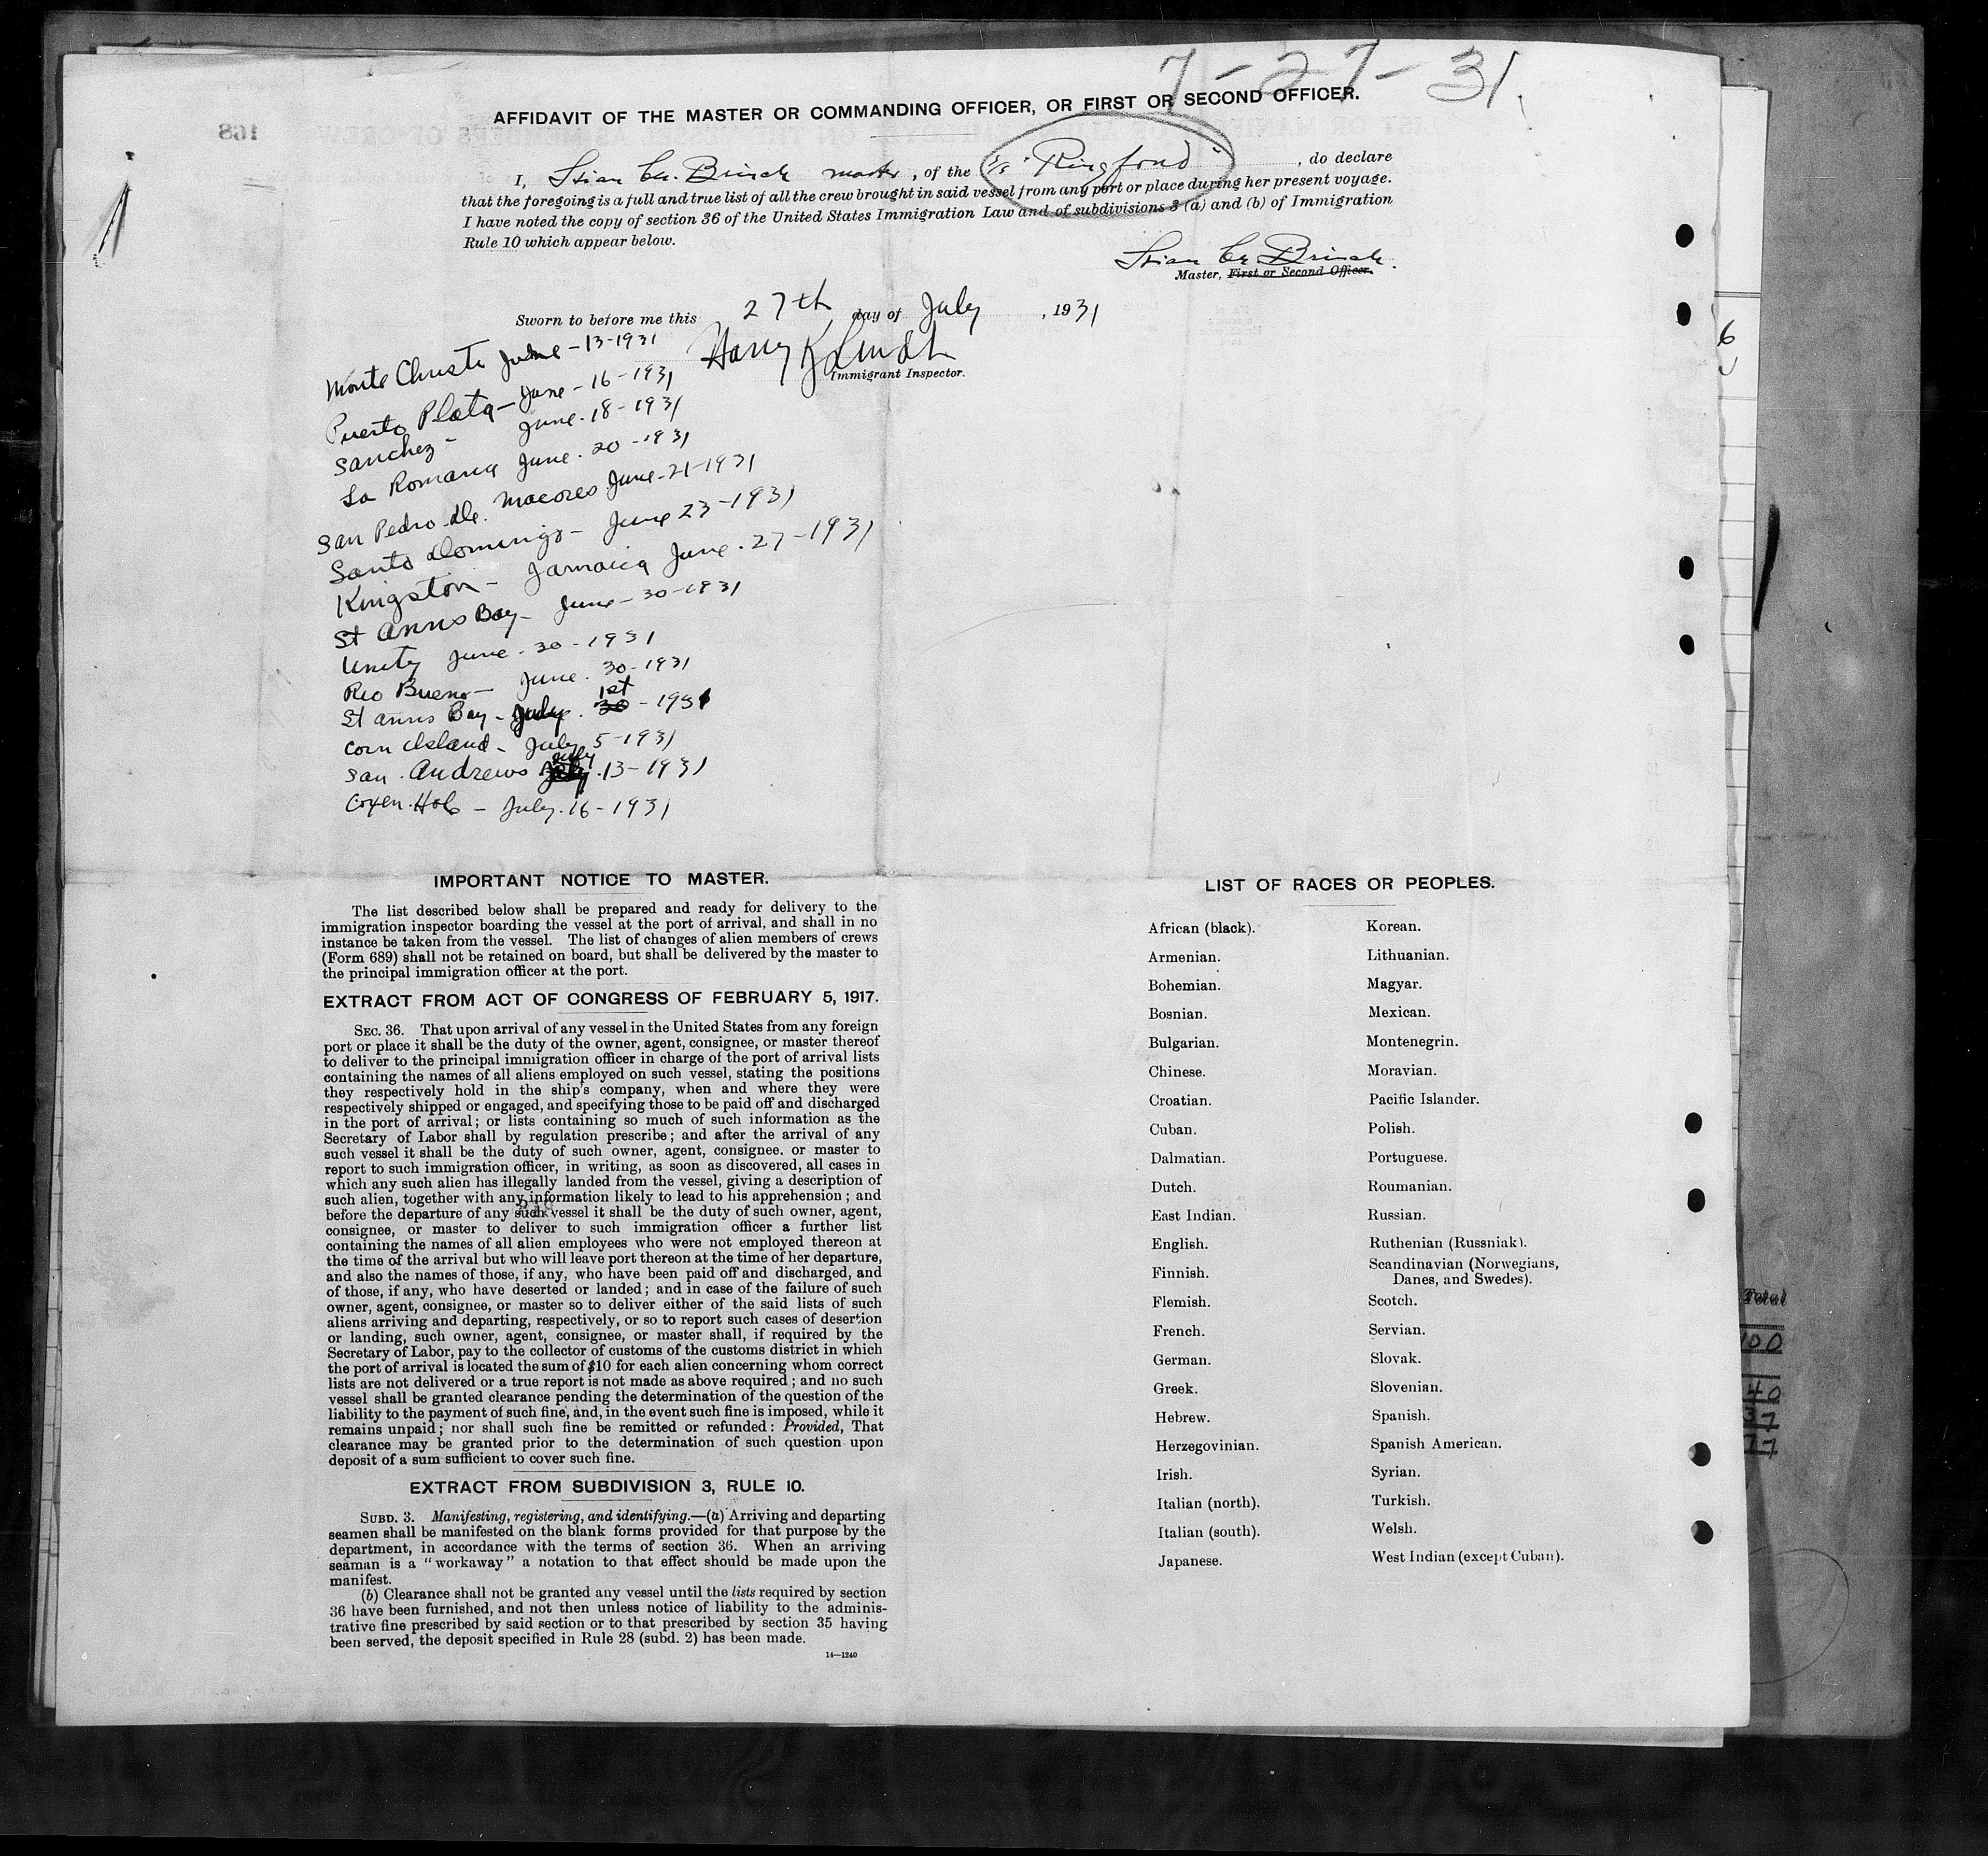 7-27-31
AFFIDAVIT OF THE MASTER OR COMMANDING OFFICER, OR FIRST OR SECOND OFFICER.
168
I, master, of the S/S "Ringfond", do declare
that the foregoing is a full and true list of all the crew brought in said vessel from any port or place during her present voyage.
I have noted the copy of section 36 of the United States Immigration Law and of subdivisions 3 (a) and (b) of Immigration
Rule 10 which appear below.
Master, First or Second Officer.
Sworn to before me this 27th day of July, 1931
Harry K
Immigrant Inspector.
Monte Christi June-13-1931
Puerto Plata-June-16-1931
Sanchez- June.18-1931
La Romana June.20-1931
San Pedro de. Macores June-21-1931
Santo Domingo- June 23-1931
Kingston- Jamaica June.27-1931
St Anns Bay- June-30-1931
Unity June-30-1931
Rio Bueno- June.30-1931
St anns Bay- July. 1st 30-1931
Corn Island- July 5-1931
San. Andrews July.13-1931
Coxen.Hole - July.16-1931
IMPORTANT NOTICE TO MASTER.
The list described below shall be prepared and ready for delivery to the
immigration inspector boarding the vessel at the port of arrival, and shall in no
instance be taken from the vessel. The list of changes of alien members of crews
(Form 689) shall not be retained on board, but shall be delivered by the master to
the principal immigration officer at the port.
EXTRACT FROM ACT OF CONGRESS OF FEBRUARY 5, 1917.
SEC. 36. That upon arrival of any vessel in the United States from any foreign
port or place it shall be the duty of the owner, agent, consignee, or master thereof
to deliver to the principal immigration officer in charge of the port of arrival lists
containing the names of all aliens employed on such vessel, stating the positions
they respectively hold in the ship's company, when and where they were
respectively shipped or engaged, and specifying those to be paid off and discharged
in the port of arrival; or lists containing so much of such information as the
Secretary of Labor shall by regulation prescribe; and after the arrival of any
such vessel it shall be the duty of such owner, agent, consignee, or master to
report to such immigration officer, in writing, as soon as discovered, all cases in
which any such alien has illegally landed from the vessel, giving a description of
such alien, together with any information likely to lead to his apprehension; and
before the departure of any such vessel it shall be the duty of such owner, agent,
consignee, or master to deliver to such immigration officer a further list
containing the names of all alien employees who were not employed thereon at
the time of the arrival but who will leave port thereon at the time of her departure,
and also the names of those, if any, who have been paid off and discharged, and
of those, if any, who have deserted or landed; and in case of the failure of such
owner, agent, consignee, or master so to deliver either of the said lists of such
aliens arriving and departing, respectively, or so to report such cases of desertion
or landing, such owner, agent, consignee, or master shall, if required by the
Secretary of Labor, pay to the collector of customs of the customs district in which
the port of arrival is located the sum of $10 for each alien concerning whom correct
lists are not delivered or a true report is not made as above required; and no such
vessel shall be granted clearance pending the determination of the question of the
liability to the payment of such fine, and, in the event such fine is imposed, while it
remains unpaid; nor shall such fine be remitted or refunded: Provided, That
clearance may be granted prior to the determination of such question upon
deposit of a sum sufficient to cover such fine.
EXTRACT FROM SUBDIVISION 3, RULE 10.
SUBD. 3. Manifesting, registering, and identifying.—(a) Arriving and departing
seamen shall be manifested on the blank forms provided for that purpose by the
department, in accordance with the terms of section 36. When an arriving
seaman is a "workaway" a notation to that effect should be made upon the
manifest.
(b) Clearance shall not be granted any vessel until the lists required by section
36 have been furnished, and not then unless notice of liability to the adminis-
trative fine prescribed by said section or to that prescribed by section 35 having
been served, the deposit specified in Rule 28 (subd. 2) has been made.
14—1240
LIST OF RACES OR PEOPLES.
African (black).
Armenian.
Bohemian.
Bosnian.
Bulgarian.
Chinese.
Croatian.
Cuban.
Dalmatian.
Dutch.
East Indian.
English.
Finnish.
Flemish.
French.
German.
Greek.
Hebrew.
Herzegovinian.
Irish.
Italian (north).
Italian (south).
Japanese.
Korean.
Lithuanian.
Magyar.
Mexican.
Montenegrin.
Moravian.
Pacific Islander.
Polish.
Portuguese.
Roumanian.
Russian.
Ruthenian (Russniak).
Scandinavian (Norwegians,
Danes, and Swedes).
Scotch.
Servian.
Slovak.
Slovenian.
Spanish.
Spanish American.
Syrian.
Turkish.
Welsh.
West Indian (except Cuban).
6
Total
100
40
37
77